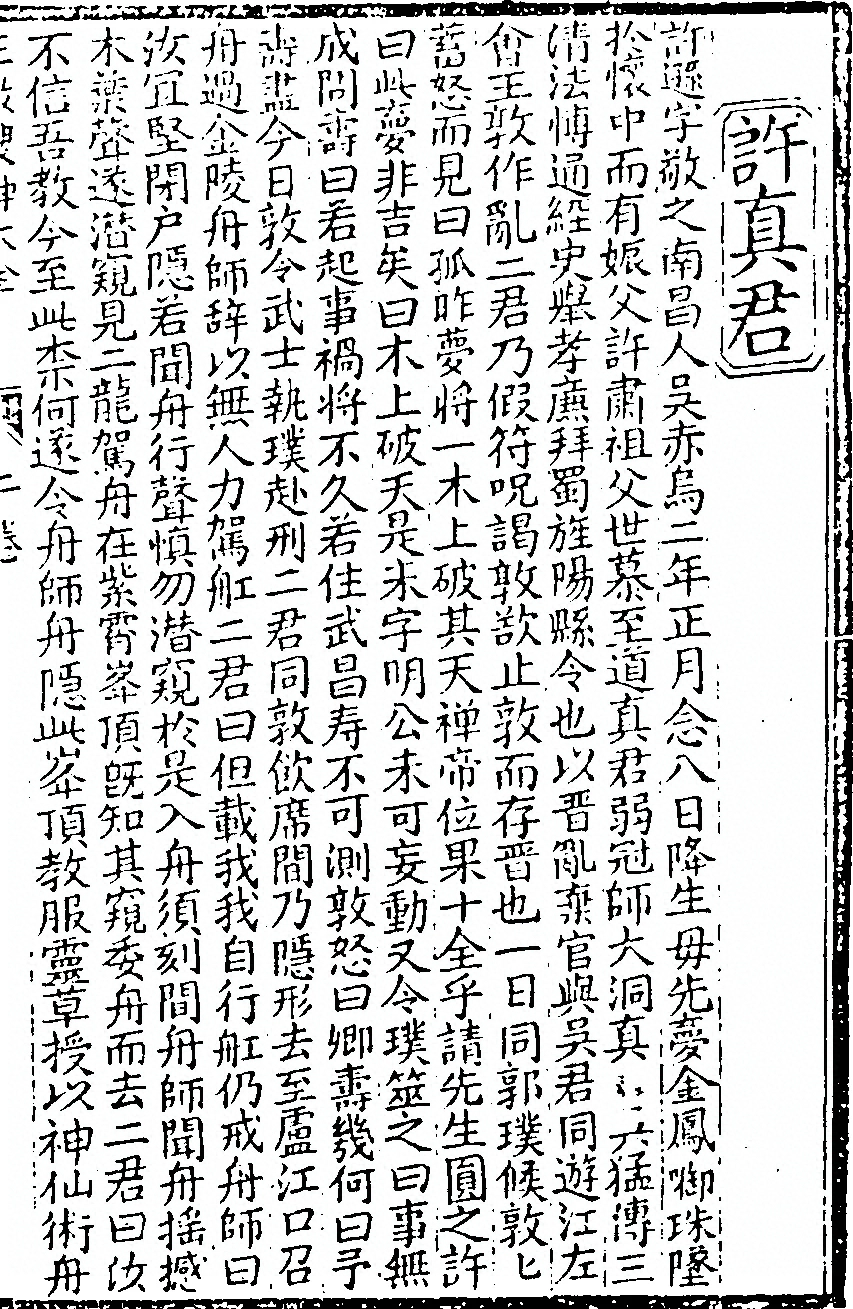 許真君
許遜字敬之南昌人吳赤烏二年正月念八日降生母先夢金鳳啣珠墜
於懷中而有娠父許肅祖父世慕至道真君弱冠師大洞真君吳猛傳三
清法博通經史舉孝廉拜蜀旌陽縣令也以晋亂棄官與吳君同遊江左
會王敦作亂二君乃假符呪謁敦欲止敦而存晋也一日同郭璞候敦匕
蓄怒而見曰孤昨夢將一木上破其天禅帝位果十全乎請先生圓之許
曰此夢非吉矣曰木上破天是未字明公未可妄動又令璞筮之曰事無
成問壽曰若起事禍將不久若住武昌寿不可測敦怒曰卿壽幾何曰予
壽盡今日敦令武士執璞赴刑二君同敦飲席間乃隱形去至盧江口召
舟過金陵舟師辞以無人力駕舡二君曰但載我我自行舡仍戒舟師曰
汝宜堅閉户隱若聞舟行聲慎勿潜窺於是入舟須刻間舟師聞舟揺撼
木葉聲遂潜窺見二龍駕舟在紫霄峯頂既知其窺委舟而去二君曰汝
不信吾教今至此柰何遂令舟師舟隱此峯頂教服靈草授以神仙術舟
二卷